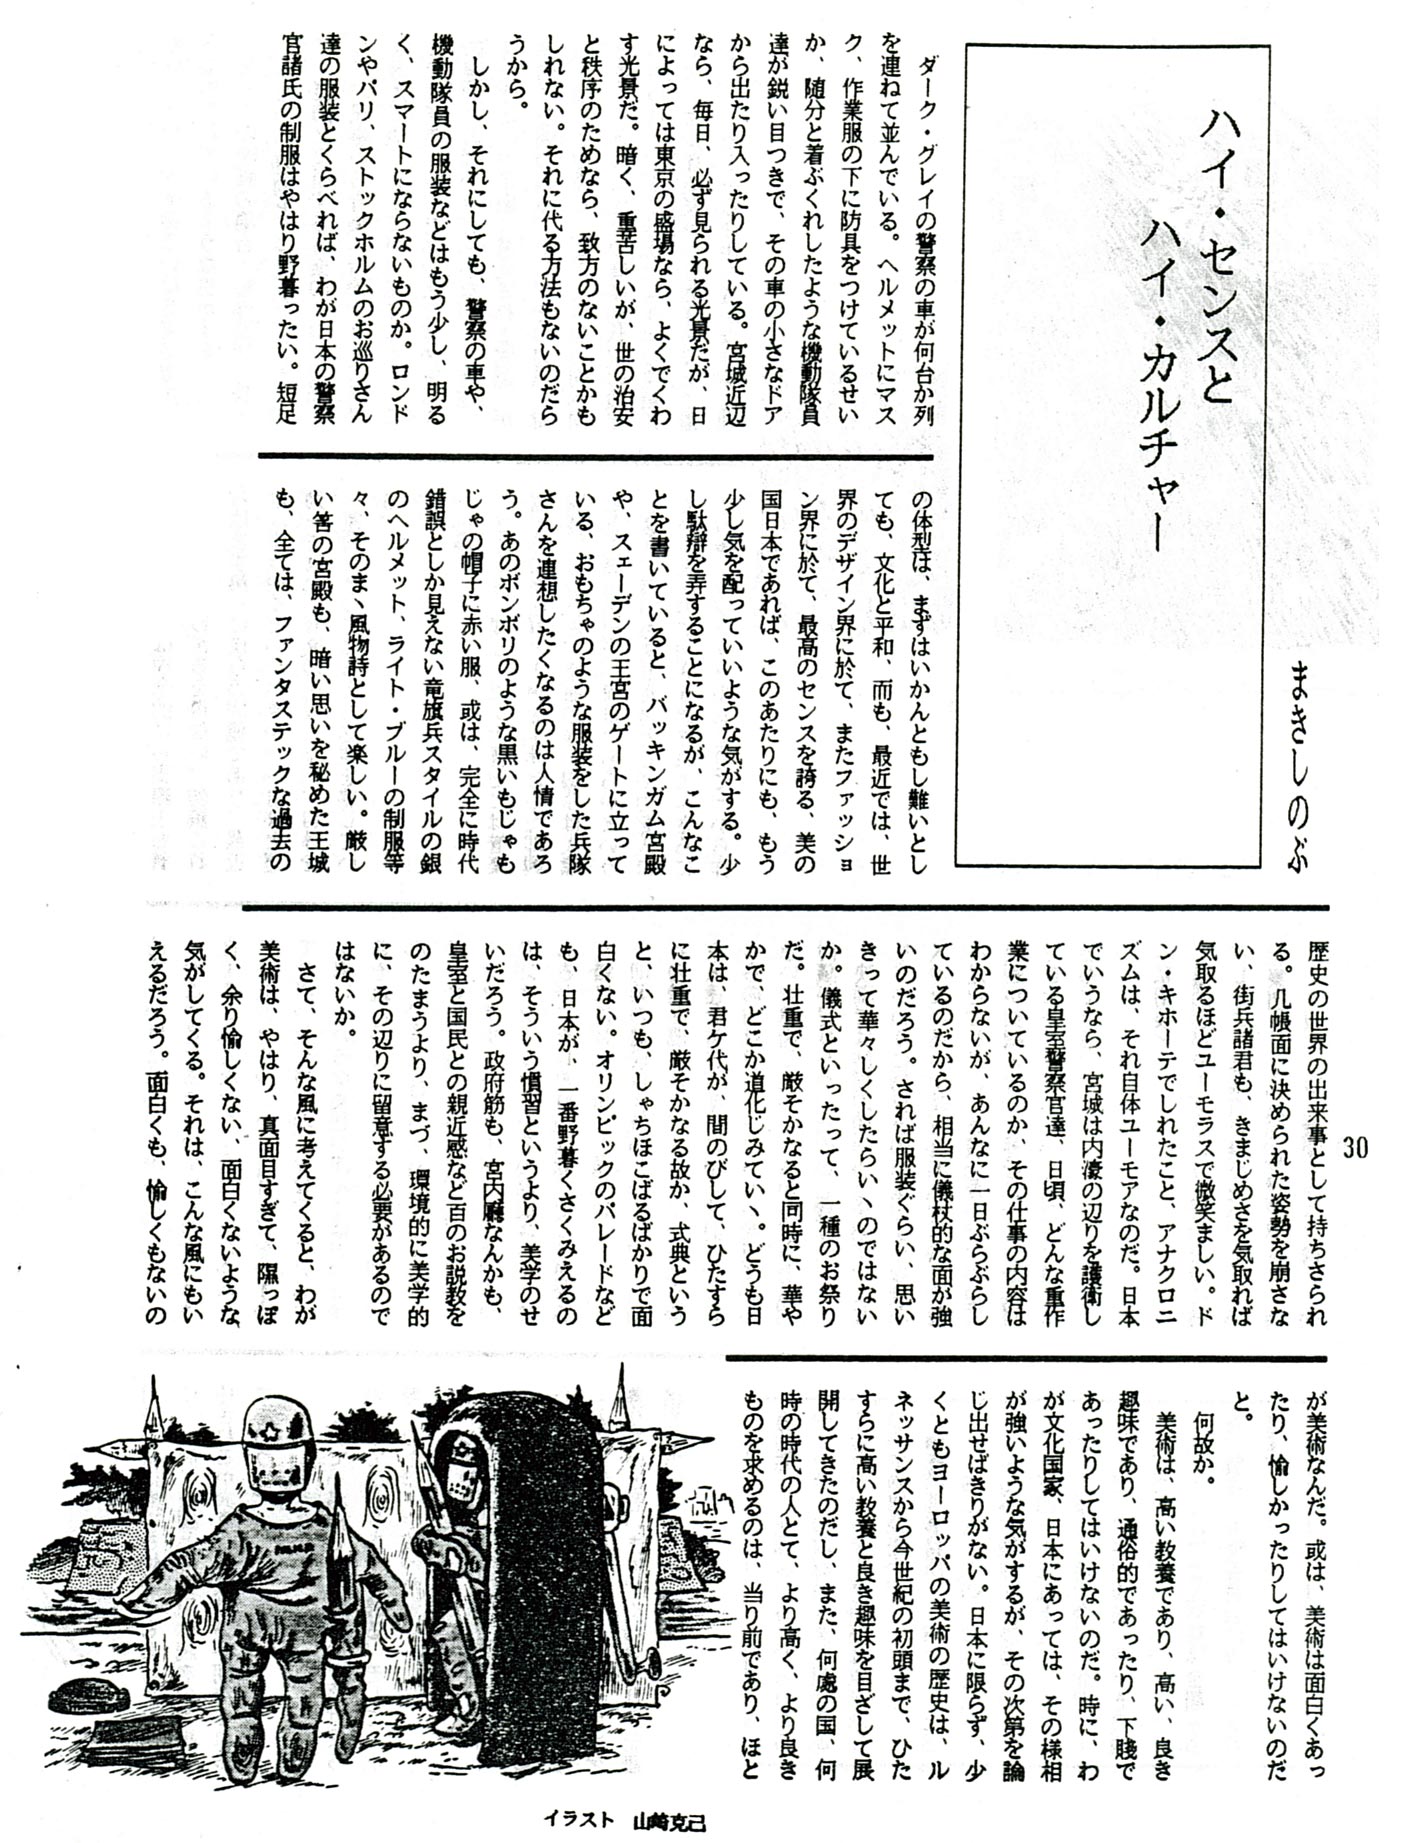 ハイ・センスと
ハイ・カルチャー
まきしのぶ
ダーク・グレイの警察の車が何台か列
を連ねて並んでいる。ヘルメットにマス
ク、作業服の下に防具をつけているせい
か、随分と着ぶくれしたような機動隊員
達が鋭い目つきで、その車の小さなドア
から出たり入ったりしている。宮城近辺
なら、毎日、必ず見られる光景だが、日
によっては東京の盛場なら、よくでくわ
す光景だ。暗く、重苦しいが、世の治安
と秩序のためなら、致方のないことかも
しれない。それに代る方法もないのだら
うから。
しかし、それにしても、警察の車や、
機動隊員の服装などはもう少し、明る
く、スマートにならないものか。ロンド
ンやパリ、ストックホルムのお巡りさん
達の服装とくらべれば、わが日本の警察
官諸氏の制服はやはり野暮ったい。短足
の体型は、まずはいかんともし難いとし
ても、文化と平和、而も、最近では、世
界のデザイン界に於て、またファッショ
ン界に於て、最高のセンスを誇る、美の
国日本であれば、このあたりにも、もう
少し気を配っていいような気がする。少
し駄辯を弄することになるが、こんなこ
とを書いていると、バッキンガム宮殿
や、スェーデンの王宮のゲートに立って
いる、おもちゃのような服装をした兵隊
さんを連想したくなるのは人情であろ
う。あのボンボリのような黒いもじゃも
じゃの帽子に赤い服、或は、完全に時代
錯誤としか見えない竜旗兵スタイルの銀
のヘルメット、ライト・ブルーの制服等
々、そのまゝ風物詩として楽しい。厳し
い筈の宮殿も、暗い思いを秘めた王城
も、全ては、ファンタステックな過去の
歴史の世界の出来事として持ちさられ
る。几帳面に決められた姿勢を崩さな
い、街兵諸君も、きまじめさを気取れば
気取るほどユーモラスで微笑ましい。ド
ン・キホーテでしれたこと、アナクロニ
ズムは、それ自体ユーモアなのだ。日本
でいうなら、宮城は内濠の辺りを護衛し
ている皇室警察官達、日頃、どんな重作
業についているのか、その仕事の内容は
わからないが、あんなに一日ぶらぶらし
ているのだから、相当に儀杖的な面が強
いのだろう。されば服装ぐらい、思い
きって華々しくしたらいゝのではない
か。儀式といったって、一種のお祭り
だ。壮重で、厳そかなると同時に、華や
かで、どこか道化じみていゝ。どうも日
本は、君ケ代が、間のびして、ひたすら
に壮重で、厳そかなる故か、式典という
と、いつも、しゃちほこばるばかりで面
白くない。オリンピックのパレードなど
も、日本が、一番野暮くさくみえるの
は、そういう慣習というより、美学のせ
いだろう。政府筋も、宮内廳なんかも、
皇室と国民との親近感など百のお説教を
のたまうより、まづ、環境的に美学的
に、その辺りに留意する必要があるので
はないか。
さて、そんな風に考えてくると、わが
美術は、やはり、真面目すぎて、隰っぽ
く、余り愉しくない、面白くないような
気がしてくる。それは、こんな風にもい
えるだろう。面白くも、愉しくもないの
が美術なんだ。或は、美術は面白くあっ
たり、愉しかったりしてはいけないのだ
と。
何故か。
美術は、高い教養であり、高い、良き
趣味であり、通俗的であったり、下賤で
あったりしてはいけないのだ。時に、わ
が文化国家、日本にあっては、その様相
が強いような気がするが、その次第を論
じ出せばきりがない。日本に限らず、少
くともヨーロッパの美術の歴史は、ル
ネッサンスから今世紀の初頭まで、ひた
すらに高い教養と良き趣味を目ざして展
開してきたのだし、また、何處の国、何
時の時代の人とて、より高く、より良き
ものを求めるのは、当り前であり、ほと
30
イラスト 山崎克己